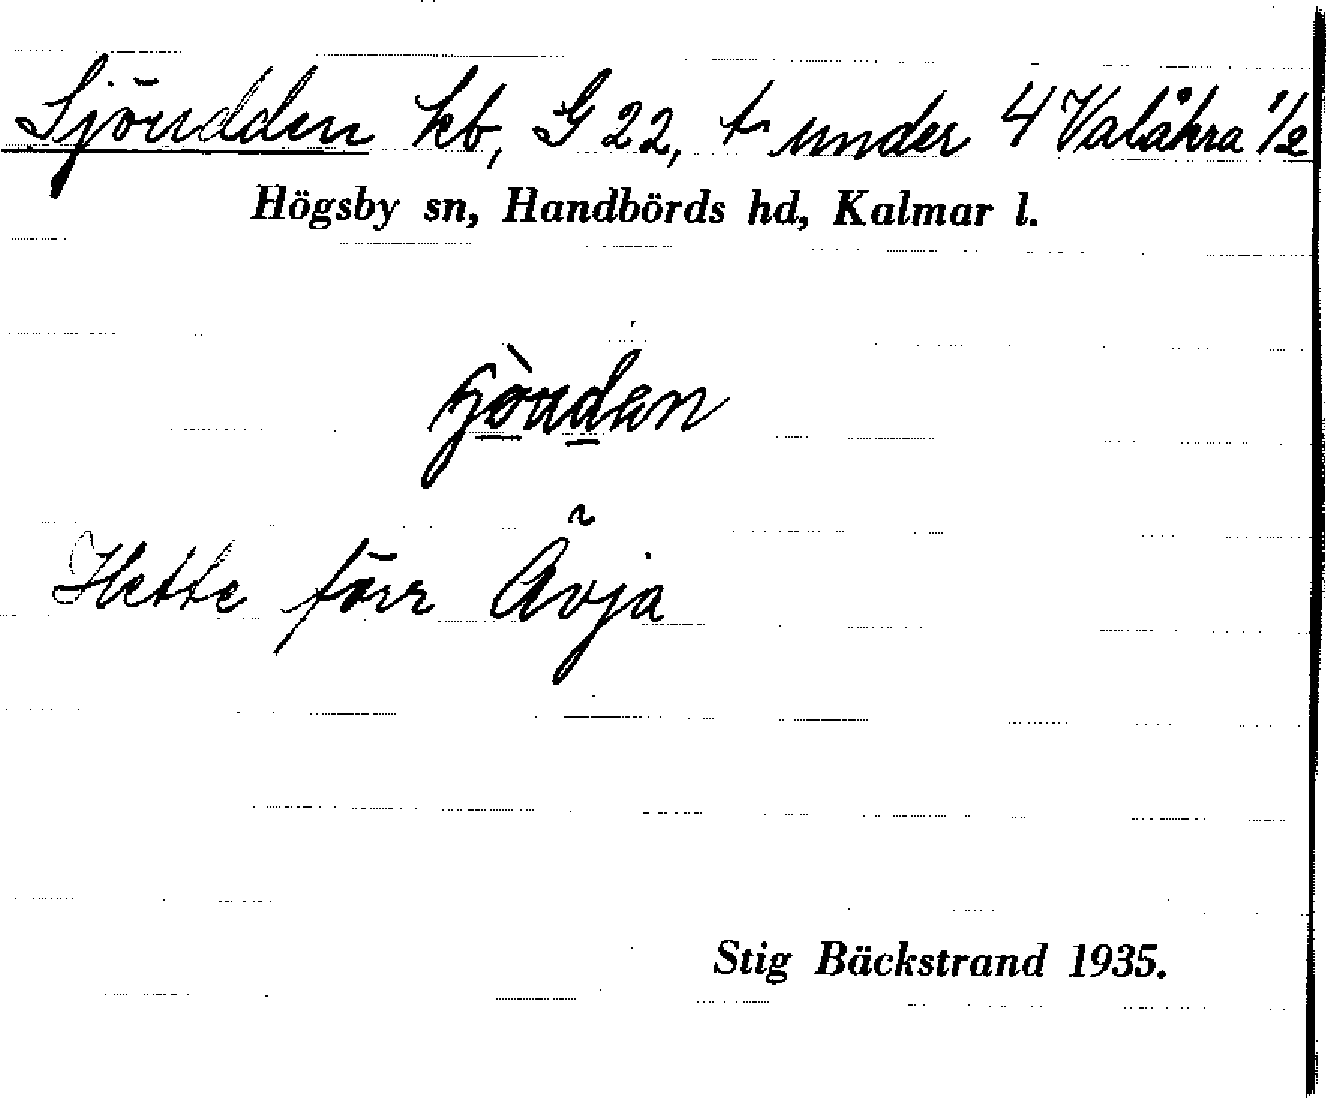 Sjöudden kb, G 22, t under 4 Valåkra 1/2
Högsby sn, Handbörds hd, Kalmar l.
Hette förr Ävja
Stig Bäckstrand 1935.